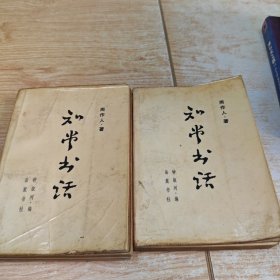 周作人·著
知堂书话
钟叔河编
岳麓书社
周作人·著
知堂书话
钟叔河编
岳麓书社